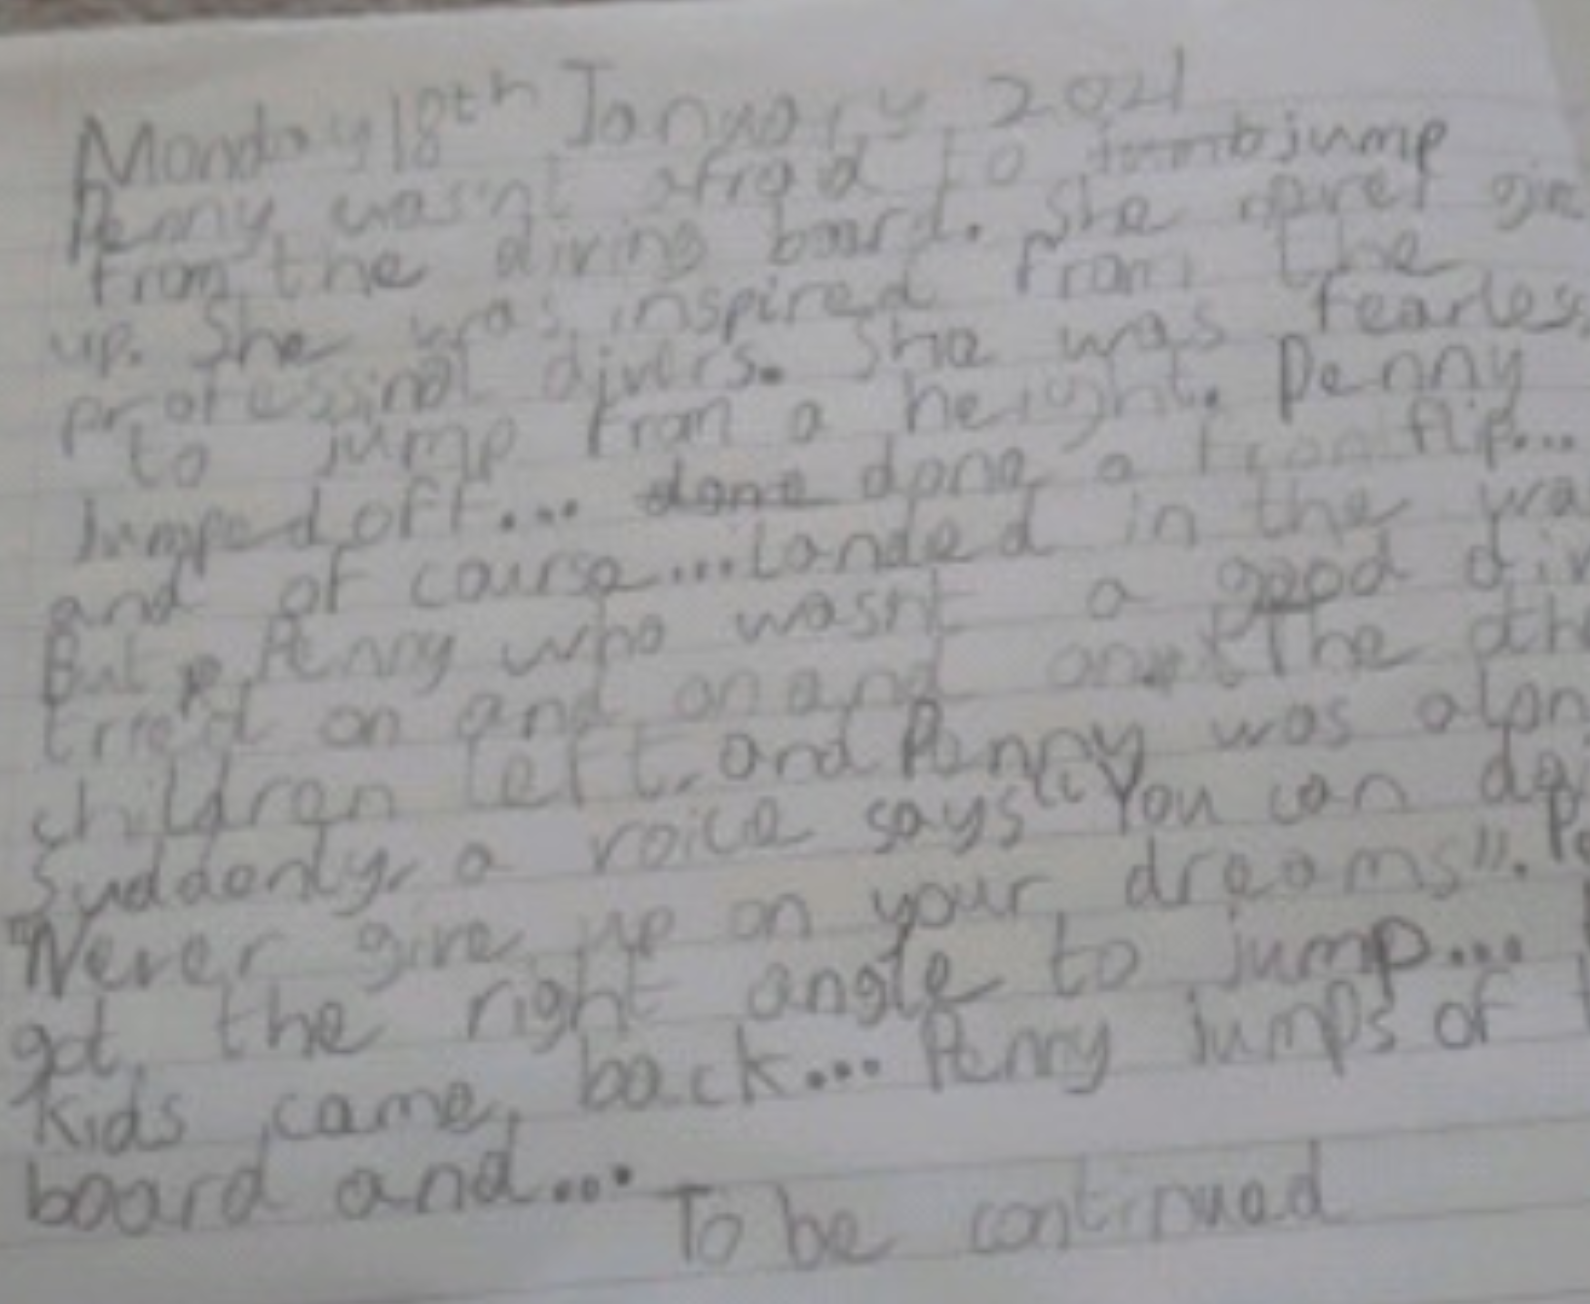 Monday 18th January 2021
Penny wasn't afrad to jump
from the diving board. She never
up. She was inspired from the
professinal divers. She was fearles
to jump from a height. Penny
Jumped off... done done a front flip...
and of course...Landed in the wa
But Penny who wasnt a good div
tried on and on and The oth
children left. and Penny was alon
Suddenly, a voice says "You can do
"Never give up on your dreams". Pe
got the right angle to jump...
Kids came back... Penny jumps of
board and....
To be continued